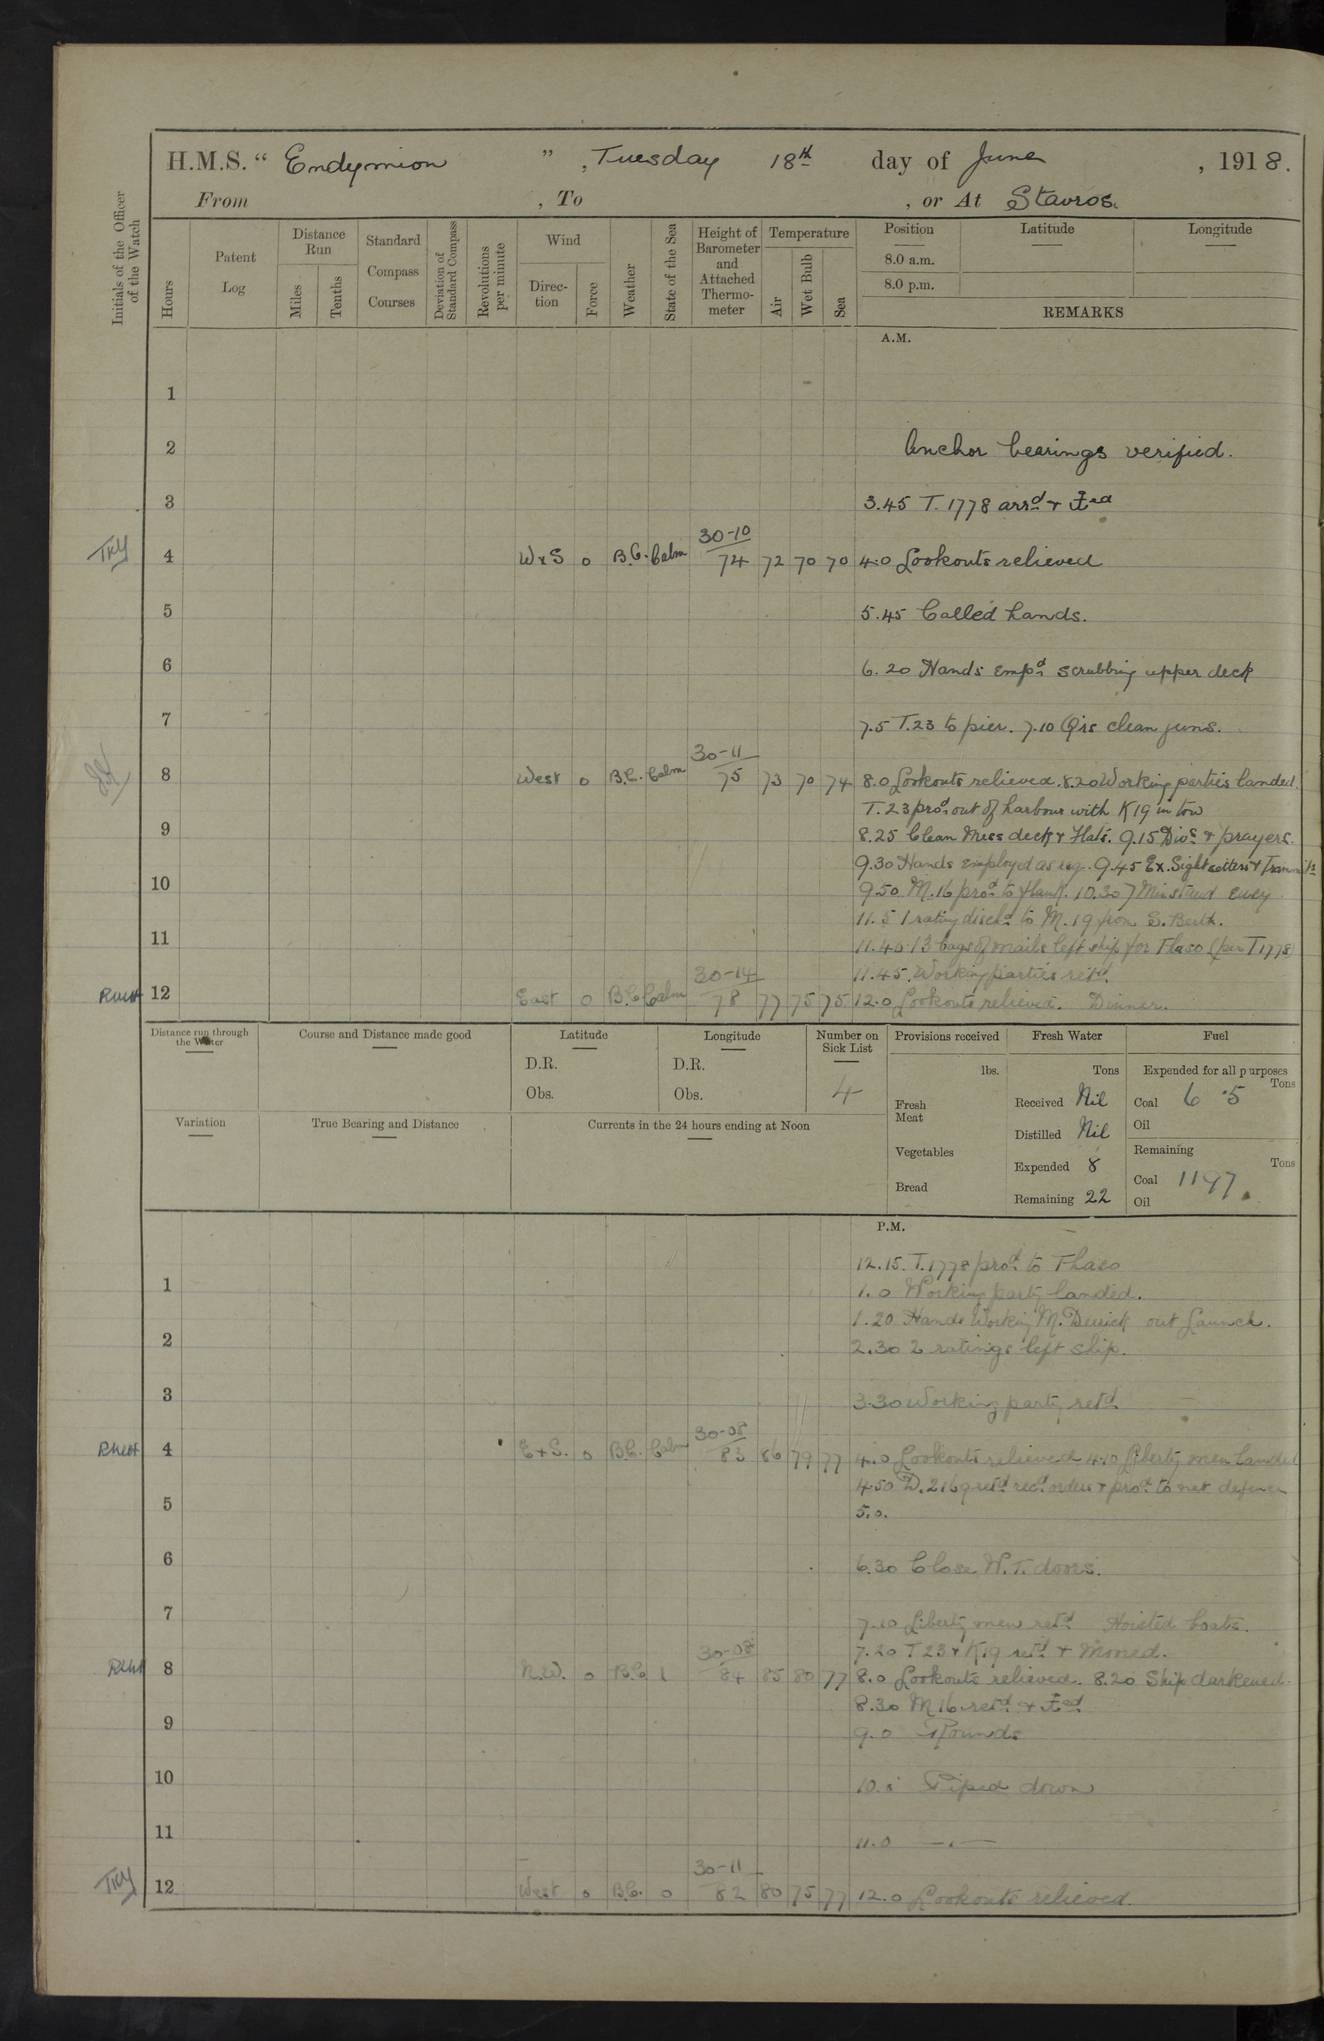 H.M.S. “ Endymion ” , Tuesday 18th day of June , 1918.
From , To , or At Stavros.
Initials of the Officer of the Watch
Hours
Patent Log
Distance Run
Miles
Tenths
Standard Compass Courses
Deviation of Standard Compass
Revolutions per minute
Wind
Direction
Force
Weather
State of the Sea
Height of Barometer and Attached Thermometer
Temperature
Air
Wet Bulb
Sea
Position
Latitude
Longitude
8.0 a.m.
8.0 p.m.
REMARKS
A.M.
1
2 Anchor bearings verified.
3 3.45 T. 1778 arrd & Fxd
30-10
4 WxS 0 B.C. Calm 74 72 70 70 4.0 Lookouts relieved
5 5.45 Called hands.
6 6.20 Hands empd scrubbing upper deck
7 7.5 T.23 to pier. 7.10 Qrs clean guns.
30-11
8 West 0 B.C. Calm 75 73 70 74 8.0 Lookouts relieved. 8.20 Working parties landed.
T.23 prod out of harbour with K19 in tow
9 8.25 Clean Mess deck & Flats. 9.15 Divs & prayers.
9.30 Hands employed as req. 9.45 Ex. Sightsetters &
10 9.50 M.16 prod to flank. 10.30
11.5 1 rating dischd to M.19 from S. Berth.
11 11.40 13 bags of mails left ship for Thaso (per T1778)
30-14 11.45 Working parties retd.
12 East 0 B.C. Calm 78 77 75 75 12.0 Lookouts relieved. Dinner.
Distance run through the Water
Course and Distance made good
Latitude
D.R.
Obs.
Longitude
D.R.
Obs.
Number on Sick List
4
Provisions received
lbs.
Fresh Meat
Vegetables
Bread
Fresh Water
Tons
Received Nil
Distilled Nil
Expended 8
Remaining 22
Fuel
Expended for all purposes
Tons
Coal 6 .5
Oil
Remaining
Tons
Coal 1197.
Oil
Variation
True Bearing and Distance
Currents in the 24 hours ending at Noon
P.M.
12.15. T.1778 prod to Thaso
1 1.0 Working party landed.
1.20 Hands Working M. Derrick out Launch.
2 2.30 2 ratings left ship.
3 3.30 Working party retd.
30-08
4 ExS. 0 B.C. Calm 83 86 79 77 4.0 Lookouts relieved 4.10 Liberty men landed
4.50 D.2169 retd recd orders & prod to net defence
5 5.0.
6 6.30 Close W.T. doors.
7 7.10 Liberty men retd Hoisted boats.
30-08 7.20 T 23 & K19 retd & Moored.
8 N.W. 0 B.C. 1 84 85 80 77 8.0 Lookouts relieved. 8.20 Ship darkened.
8.30 M16 retd & Fxd
9 9.0 Rounds
10 Piped down
11 11.0 —.—
30-11
12 West 0 B.C. 0 82 80 75 77 12.0 Lookouts relieved.